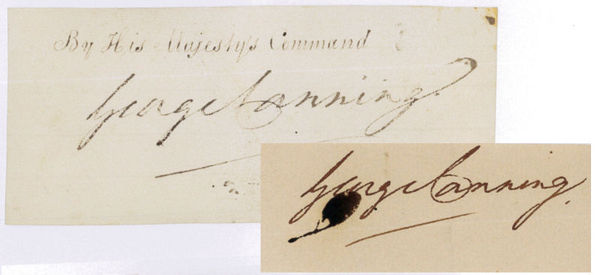 By His Majesty's Command
George Canning.
George Canning.